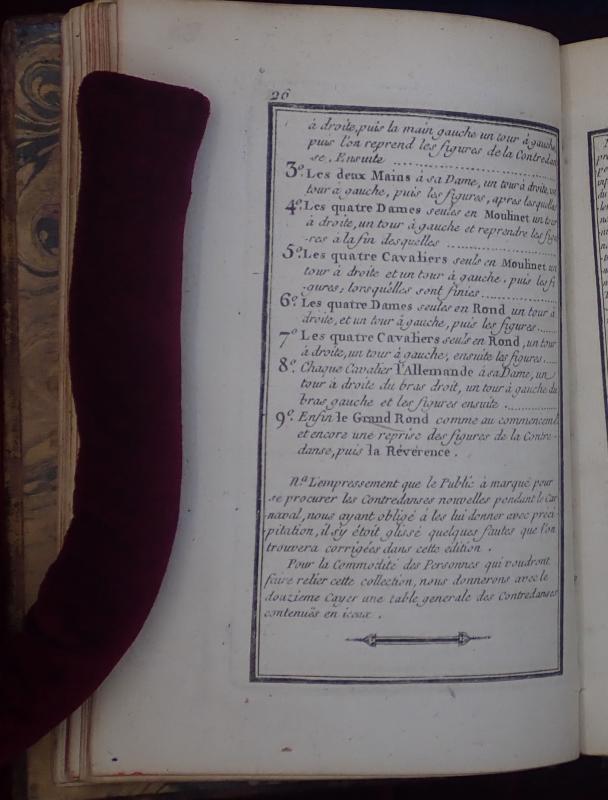 26
à droite, puis la main gauche un tour à gauche
puis l'on reprend les figures de la Contredan
se. Ensuite ....................
3.º Les deux Mains à sa Dame, un tour à droite, un
tour à gauche, puis les figures, apres lesquelles
4.º Les quatre Dames seules en Moulinet un tour
à droite, un tour à gauche et reprendre les figu
-res à la fin desquelles ....................
5.º Les quatre Cavaliers seuls en Moulinet un
tour à droite et un tour à gauche. puis les fi
-gures; lorsquelles sont finies ...............
6.º Les quatre Dames seules en Rond un tour à
droite, et un tour à gauche, puis les figures ......
7.º Les quatre Cavaliers seuls en Rond, un tour
à droite, un tour à gauche; ensuite les figures ....
8.º Chaque Cavalier l'Allemande à sa Dame, un
tour à droite du bras droit, un tour à gauche du
bras gauche et les figures ensuite ...........
9.º Enfin le Grand Rond comme au commencemt.
et encore une reprise des figures de la Contre-
danse, puis la Révérence.
n.ª L'empressement que le Public à marqué pour
se procurer les Contredanses nouvelles pendant le Car
-naval, nous ayant obligé à les lui donner avec préci
-pitation, il s'y étoit glissé quelques fautes que l'on
trouvera corrigées dans cette édition.
Pour la Commodité des Personnes qui voudront
faire relier cette collection, nous donnerons avec le
douzieme Cayer une table generale des Contredanses
contenuës en iceux.